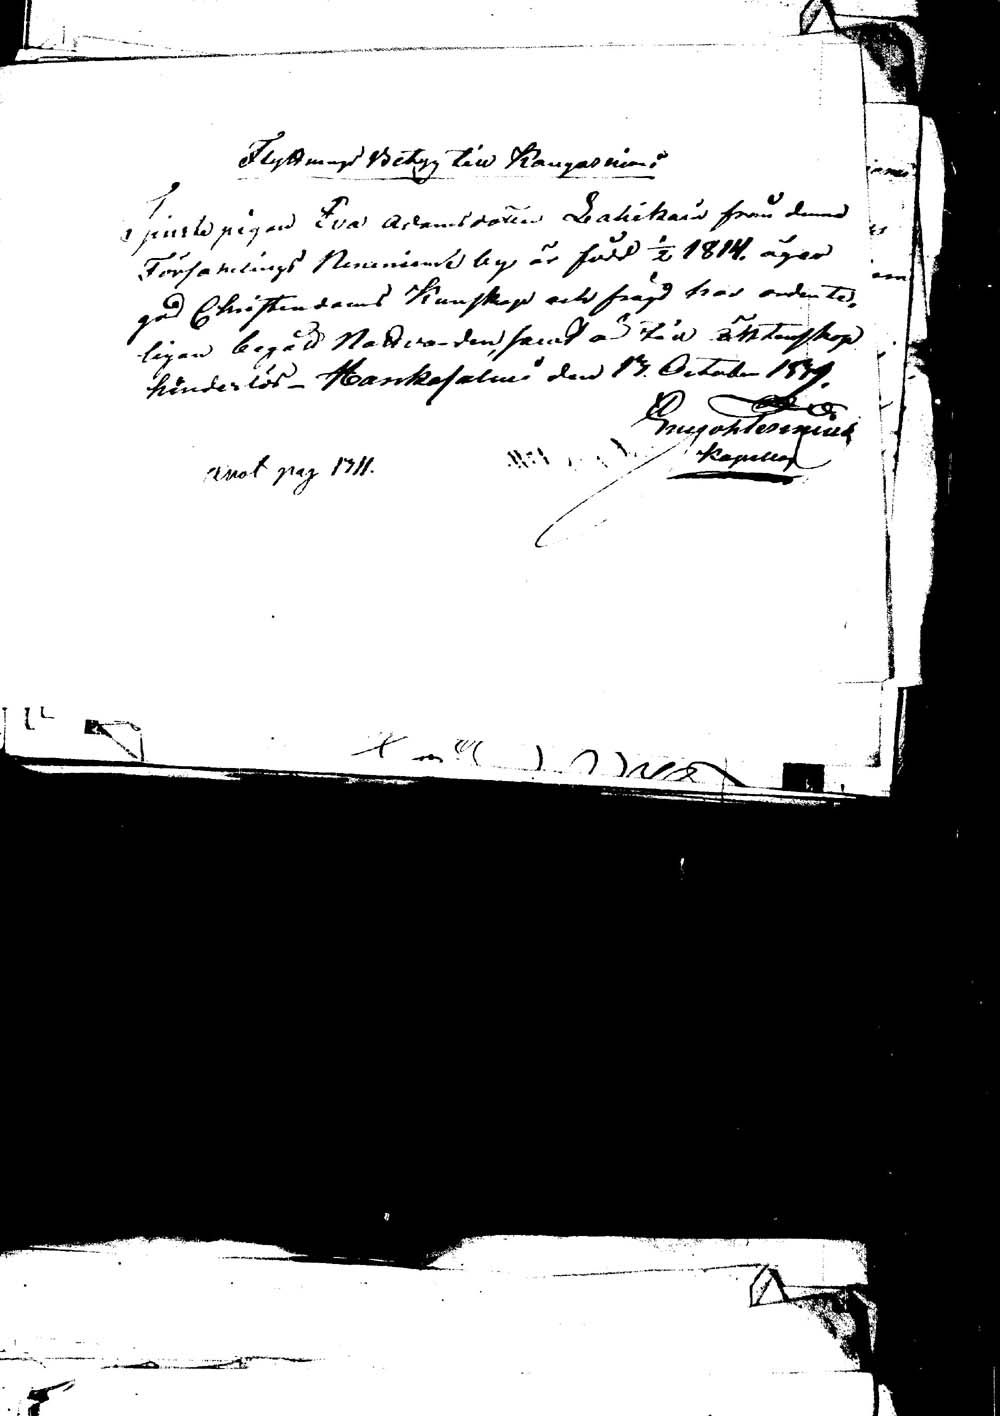 Flyttnings Betyg till Kangasniemi
Tjenste pigan Eva Adamsdotter Lahikain från denna
Församlings Nemiemi by är född 1/2 1814. äger
god Christendoms Kunskap och frägd har ordente,
ligen begått Nattvarden, samt är till äktenskap
hinderlös – Hankasalmi den 17 October 1839.
Kapellan
anot pag 1311.